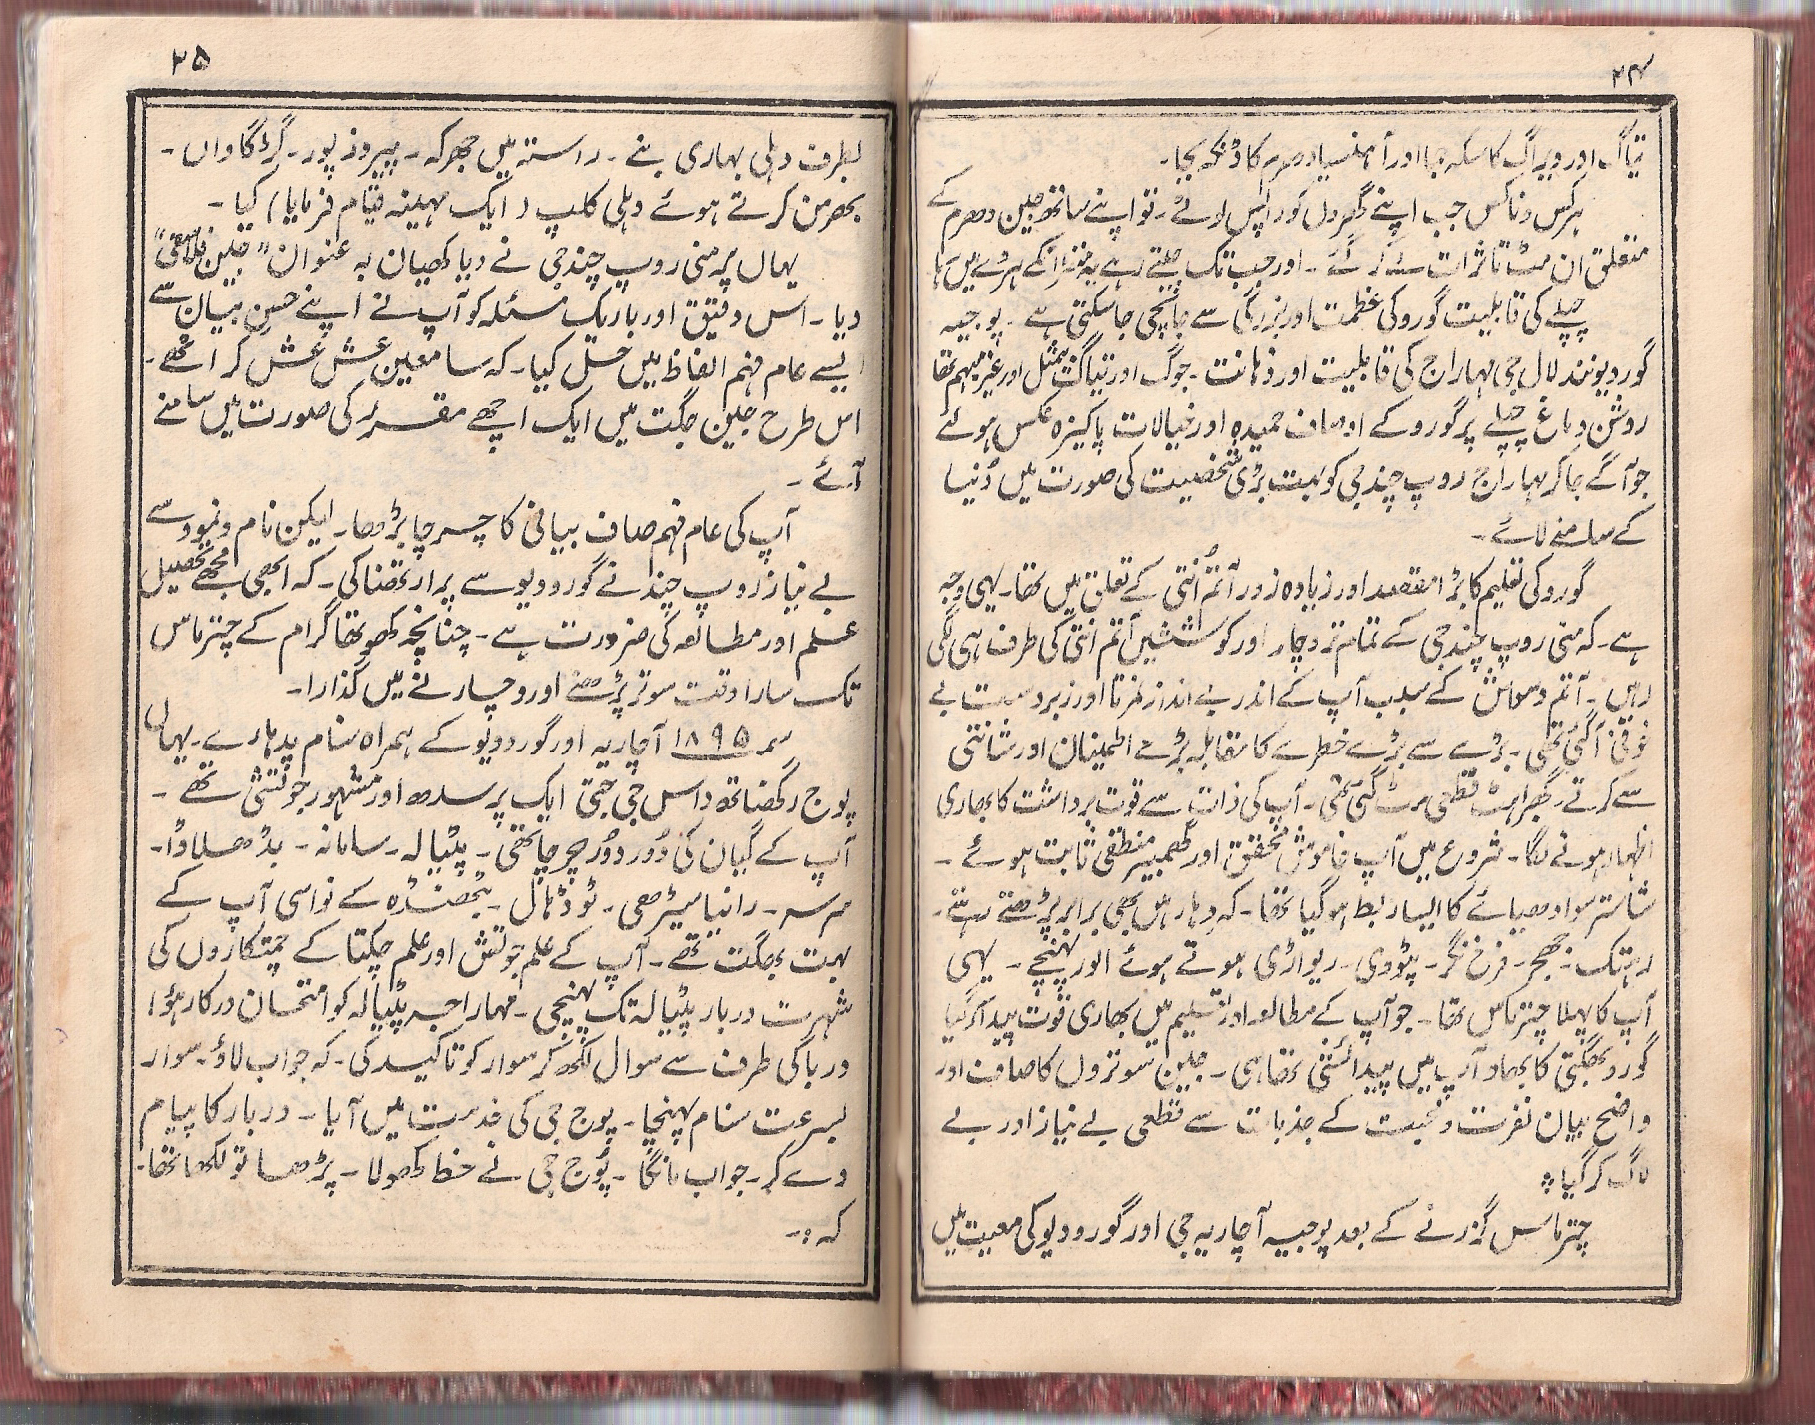 ۳۴
تیاگ اور ویراگ کا سکہ جما اور اہنسا دھرم کا ڈنکہ بجا۔
ہر کس و ناکس جب اپنے گھروں کو واپس لوٹے۔ تو اپنے ساتھ جین دھرم کے
متعلق ان مٹ تاثرات لے کر گئے۔ اور جب تک جیتے رہے یہ
چیلے کی قابلیت گورو کی عظمت اور بزرگی سے جانچی جا سکتی ہے۔ پوجیہ
گوردیو نند لال جی مہاراج کی قابلیت اور ذہانت۔ جوگ اور تیاگ بیمثل اور غیر مبہم تھا
روشن دماغ چیلے پر گورو کے اوصاف حمیدہ اور خیالات پاکیزہ عکس ہوئے
جو آگے جا کر مہاراج روپ چند جی کو بہت بڑی شخصیت کی صورت میں دُنیا
کے سامنے لائے۔
گورو کی تعلیم کا بڑا مقصد اور زیادہ زور آتم اُنتی کے تعلق میں تھا۔ یہی وجہ
ہے۔ کہ منی روپ چند جی کے تمام تر وچار اور کوششیں آتم انتی کی طرف ہی لگی
رہیں۔ آتم وسواش کے سبب آپ کے اندر بے انداز نمرتا اور زبردست بے
خوفی آ گئی تھی۔ بڑے سے بڑے خطرے کا مقابلہ بڑے اطمینان اور شانتی
سے کرتے۔ گھبراہٹ قطعی مٹ گئی تھی۔ آپ کی ذات سے قوت برداشت کا بھاری
اظہار ہونے لگا۔ شروع میں آپ خاموش محقق اور گھمبیر منطقی ثابت ہوئے۔
شاستر سوادھیائے کا ایسا ربط ہو گیا تھا۔ کہ وہار میں بھی برابر پڑھتے رہتے۔
رہتک۔ جھجر۔ فرخ نگر۔ پٹودی۔ ریواڑی ہوتے ہوئے الور پہنچے۔ یہی
آپ کا پہلا چترماس تھا۔ جو آپ کے مطالعہ اور تسلیم میں بھاری قوت پیدا کر گیا
گورو بھگتی کا بھاو آپ میں پیدائشی تھا ہی۔ جین سوتروں کا صاف اور
واضح بیان نفرت و محبت کے جذبات سے قطعی بے نیاز اور بے
لاگ کر گیا۔
چترماس گزرنے کے بعد پوجیہ آچاریہ جی اور گورودیو کی معیت میں
۳۵
بطرف دہلی بہاری بنے۔ راستہ میں جھرکہ۔ پیروز پور۔ گڑگاواں۔
بھرمن کرتے ہوئے دہلی کلپ (ایک مہینہ قیام فرمایا) کیا۔
یہاں پر منی روپ چند جی نے ویاکھیان بہ عنوان "جین فلاسفی"
دیا۔ اس دقیق اور باریک مسئلہ کو آپ نے اپنے حسن بیان سے
ایسے عام فہم الفاظ میں حل کیا۔ کہ سامعین عش عش کر اٹھے۔
اس طرح جین جگت میں ایک اچھے مقرر کی صورت میں سامنے
آئے۔
آپ کی عام فہم صاف بیانی کا چرچا بڑھا۔ لیکن نام و نمود سے
بے نیاز روپ چند نے گورودیو سے پرارتھنا کی۔ کہ ابھی مجھے تحصیل
علم اور مطالعہ کی ضرورت ہے۔ چنانچہ گرام کے چترماس
تک سارا وقت سوتر پڑھنے اور وچارنے میں گذارا۔
سمہ ۱۸۹۵ آچاریہ اور گورودیو کے ہمراہ سنام پدہارے۔ یہاں
پوج رگھناتھ داس جی جتی ایک پرسدھ اور مشہور جوتشی تھے۔
آپ کے گیان کی دُور دُور چرچا تھی۔ پٹیالہ۔ سامانہ۔ بڈھلاڈا۔
سرسہ۔ رانیا۔ ۔ بٹھنڈہ کے نواسی آپ کے
بہت بھگت تھے۔ آپ کے علم جوتش اور علم چکتا کے چمتکاروں کی
شہرت دربار پٹیالہ تک پہنچی۔ مہاراجہ پٹیالہ کو امتحان درکار ہوا!
دربار کی طرف سے سوال لکھ کر سوار کو تاکید کی۔ کہ جواب لاؤ۔ سوار
بسرعت سنام پہنچا۔ پوج جی کی خدمت میں آیا۔ دربار کا پیام
دے کر۔ جواب مانگا۔ پُوج جی نے خط کھولا۔ پڑھا تو لکھا تھا۔
کہ:۔